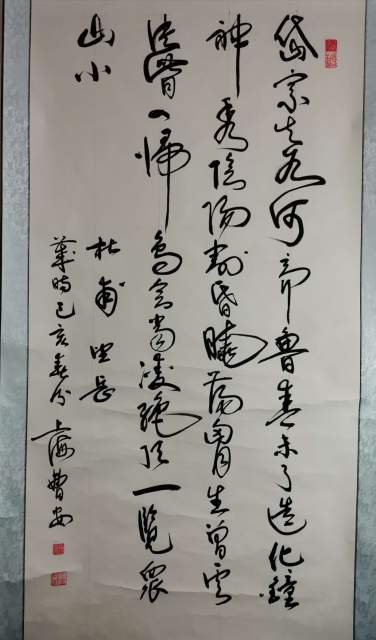 岱宗夫如何齐鲁青未了造化鐘
神秀陰陽割昏曉蕩胸生曾雲
決眥入歸鳥會當凌絕頂一覽眾
山小
杜甫望岳
歲時己亥春分
上海曹安